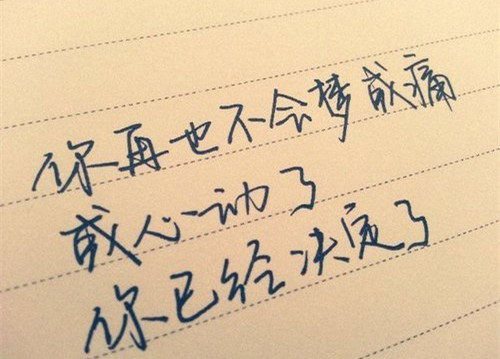 你再也不会梦或痛
或心动了
你已经决定了